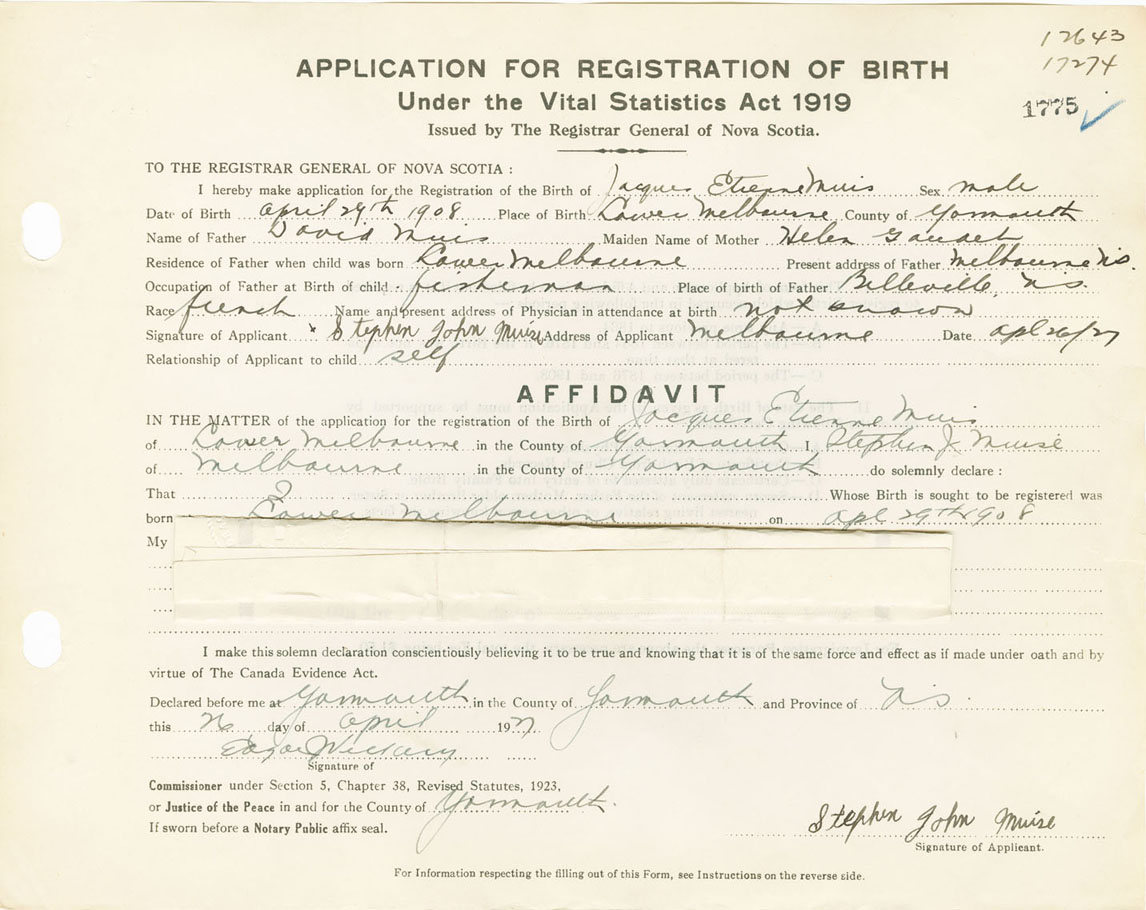 12643
17274
1775
APPLICATION FOR REGISTRATION OF BIRTH
Under the Vital Statistics Act 1919
Issued by The Registrar General of Nova Scotia.
TO THE REGISTRAR GENERAL OF NOVA SCOTIA :
I hereby make application for the Registration of the Birth of Jacques Etienne Muis Sex male
Date of Birth April 29th 1908 Place of Birth Lower Melbourne County of Yarmouth
Name of Father David Muis Maiden Name of Mother Helen Gaudet
Residence of Father when child was born Lower Melbourne Present address of Father Melbourne N.S.
Occupation of Father at Birth of child fisherman Place of birth of Father Belleville, N.S.
Race french Name and present address of Physician in attendance at birth not known
Signature of Applicant x Stephen John Muise Address of Applicant Melbourne Date Apl 26/27
Relationship of Applicant to child self
AFFIDAVIT
IN THE MATTER of the application for the registration of the Birth of Jacques Etienne Muis
of Lower Melbourne in the County of Yarmouth I, Stephen J. Muise
of Melbourne in the County of Yarmouth do solemnly declare :
That I Whose Birth is sought to be registered was
born Lower Melbourne on Apl 29th 1908
My
I make this solemn declaration conscientiously believing it to be true and knowing that it is of the same force and effect as if made under oath and by
virtue of The Canada Evidence Act.
Declared before me at Yarmouth in the County of Yarmouth and Province of N.S.
this 26 day of April 1927
Signature of
Commissioner under Section 5, Chapter 38, Revised Statutes, 1923,
or Justice of the Peace in and for the County of Yarmouth.
If sworn before a Notary Public affix seal.
Stephen John Muise
Signature of Applicant.
For Information respecting the filling out of this Form, see Instructions on the reverse side.